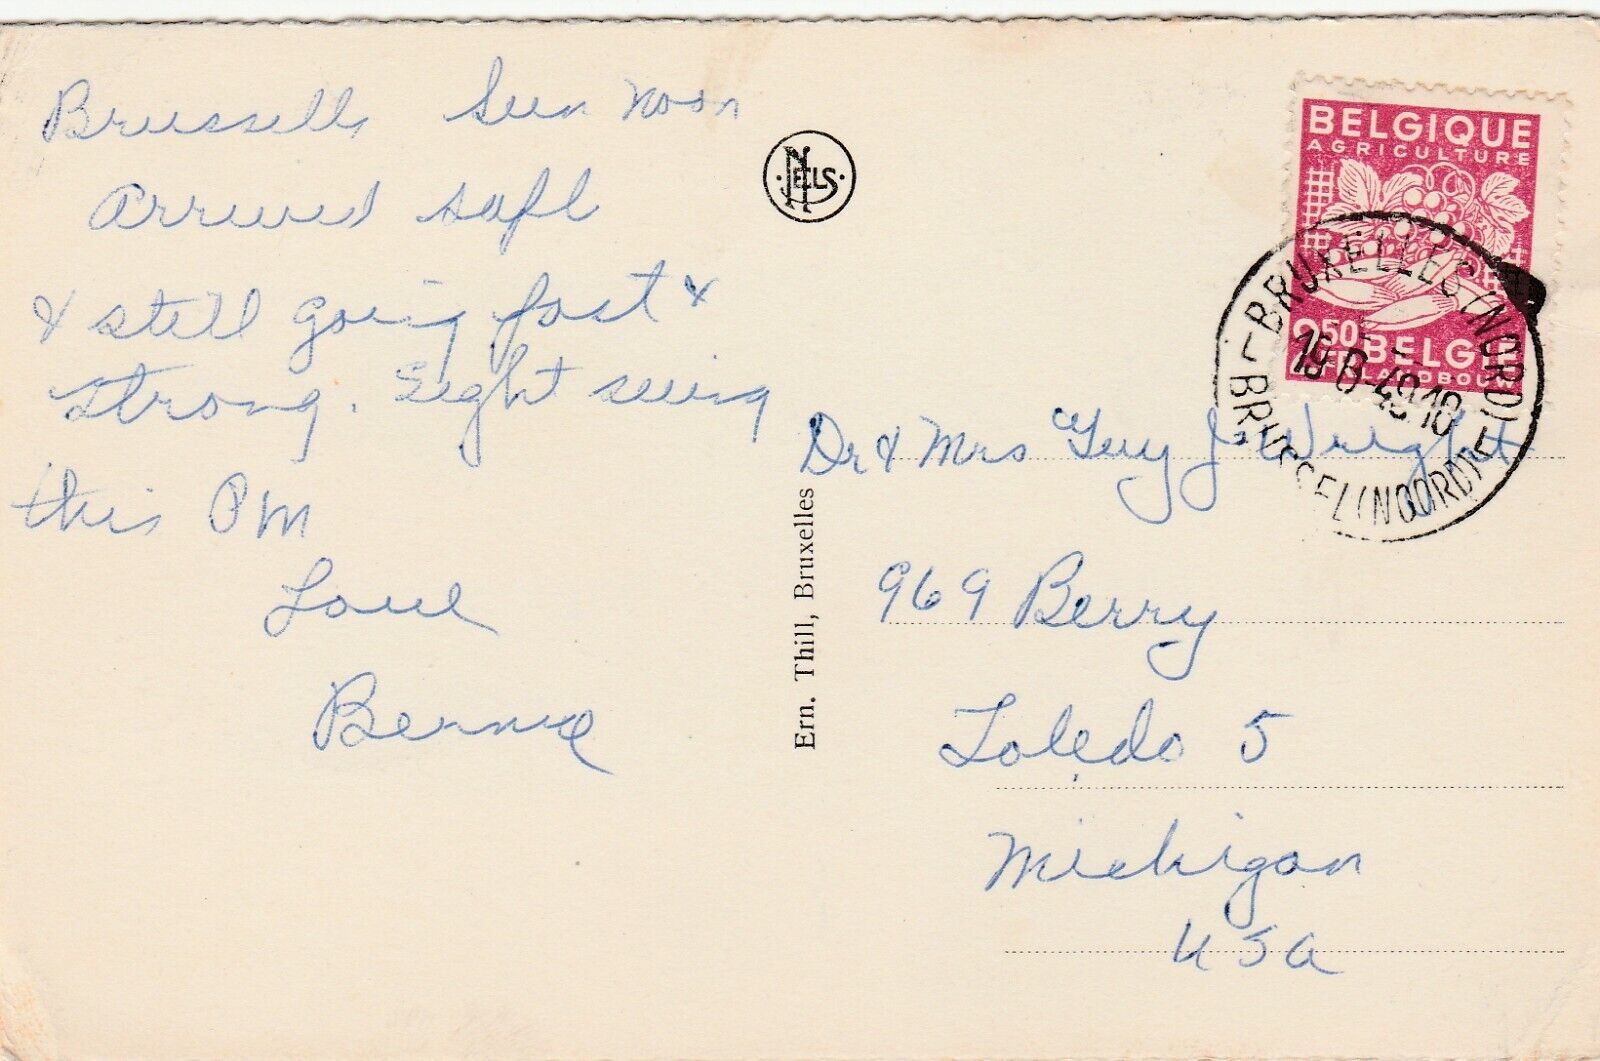 Brussells Sun Noon
Arrived safe
& still going fast &
strong. Sight seeing
this PM
Love
Bernie
NELS
Ern. Thill, Bruxelles
BELGIQUE
AGRICULTURE
2.50 BELGIE
LANDBOUW
BRUXELLES (NORD)
BRUSSEL (NOORD)
Dr & Mrs Guy J Wright
969 Berry
Toledo 5
Michigan
USA